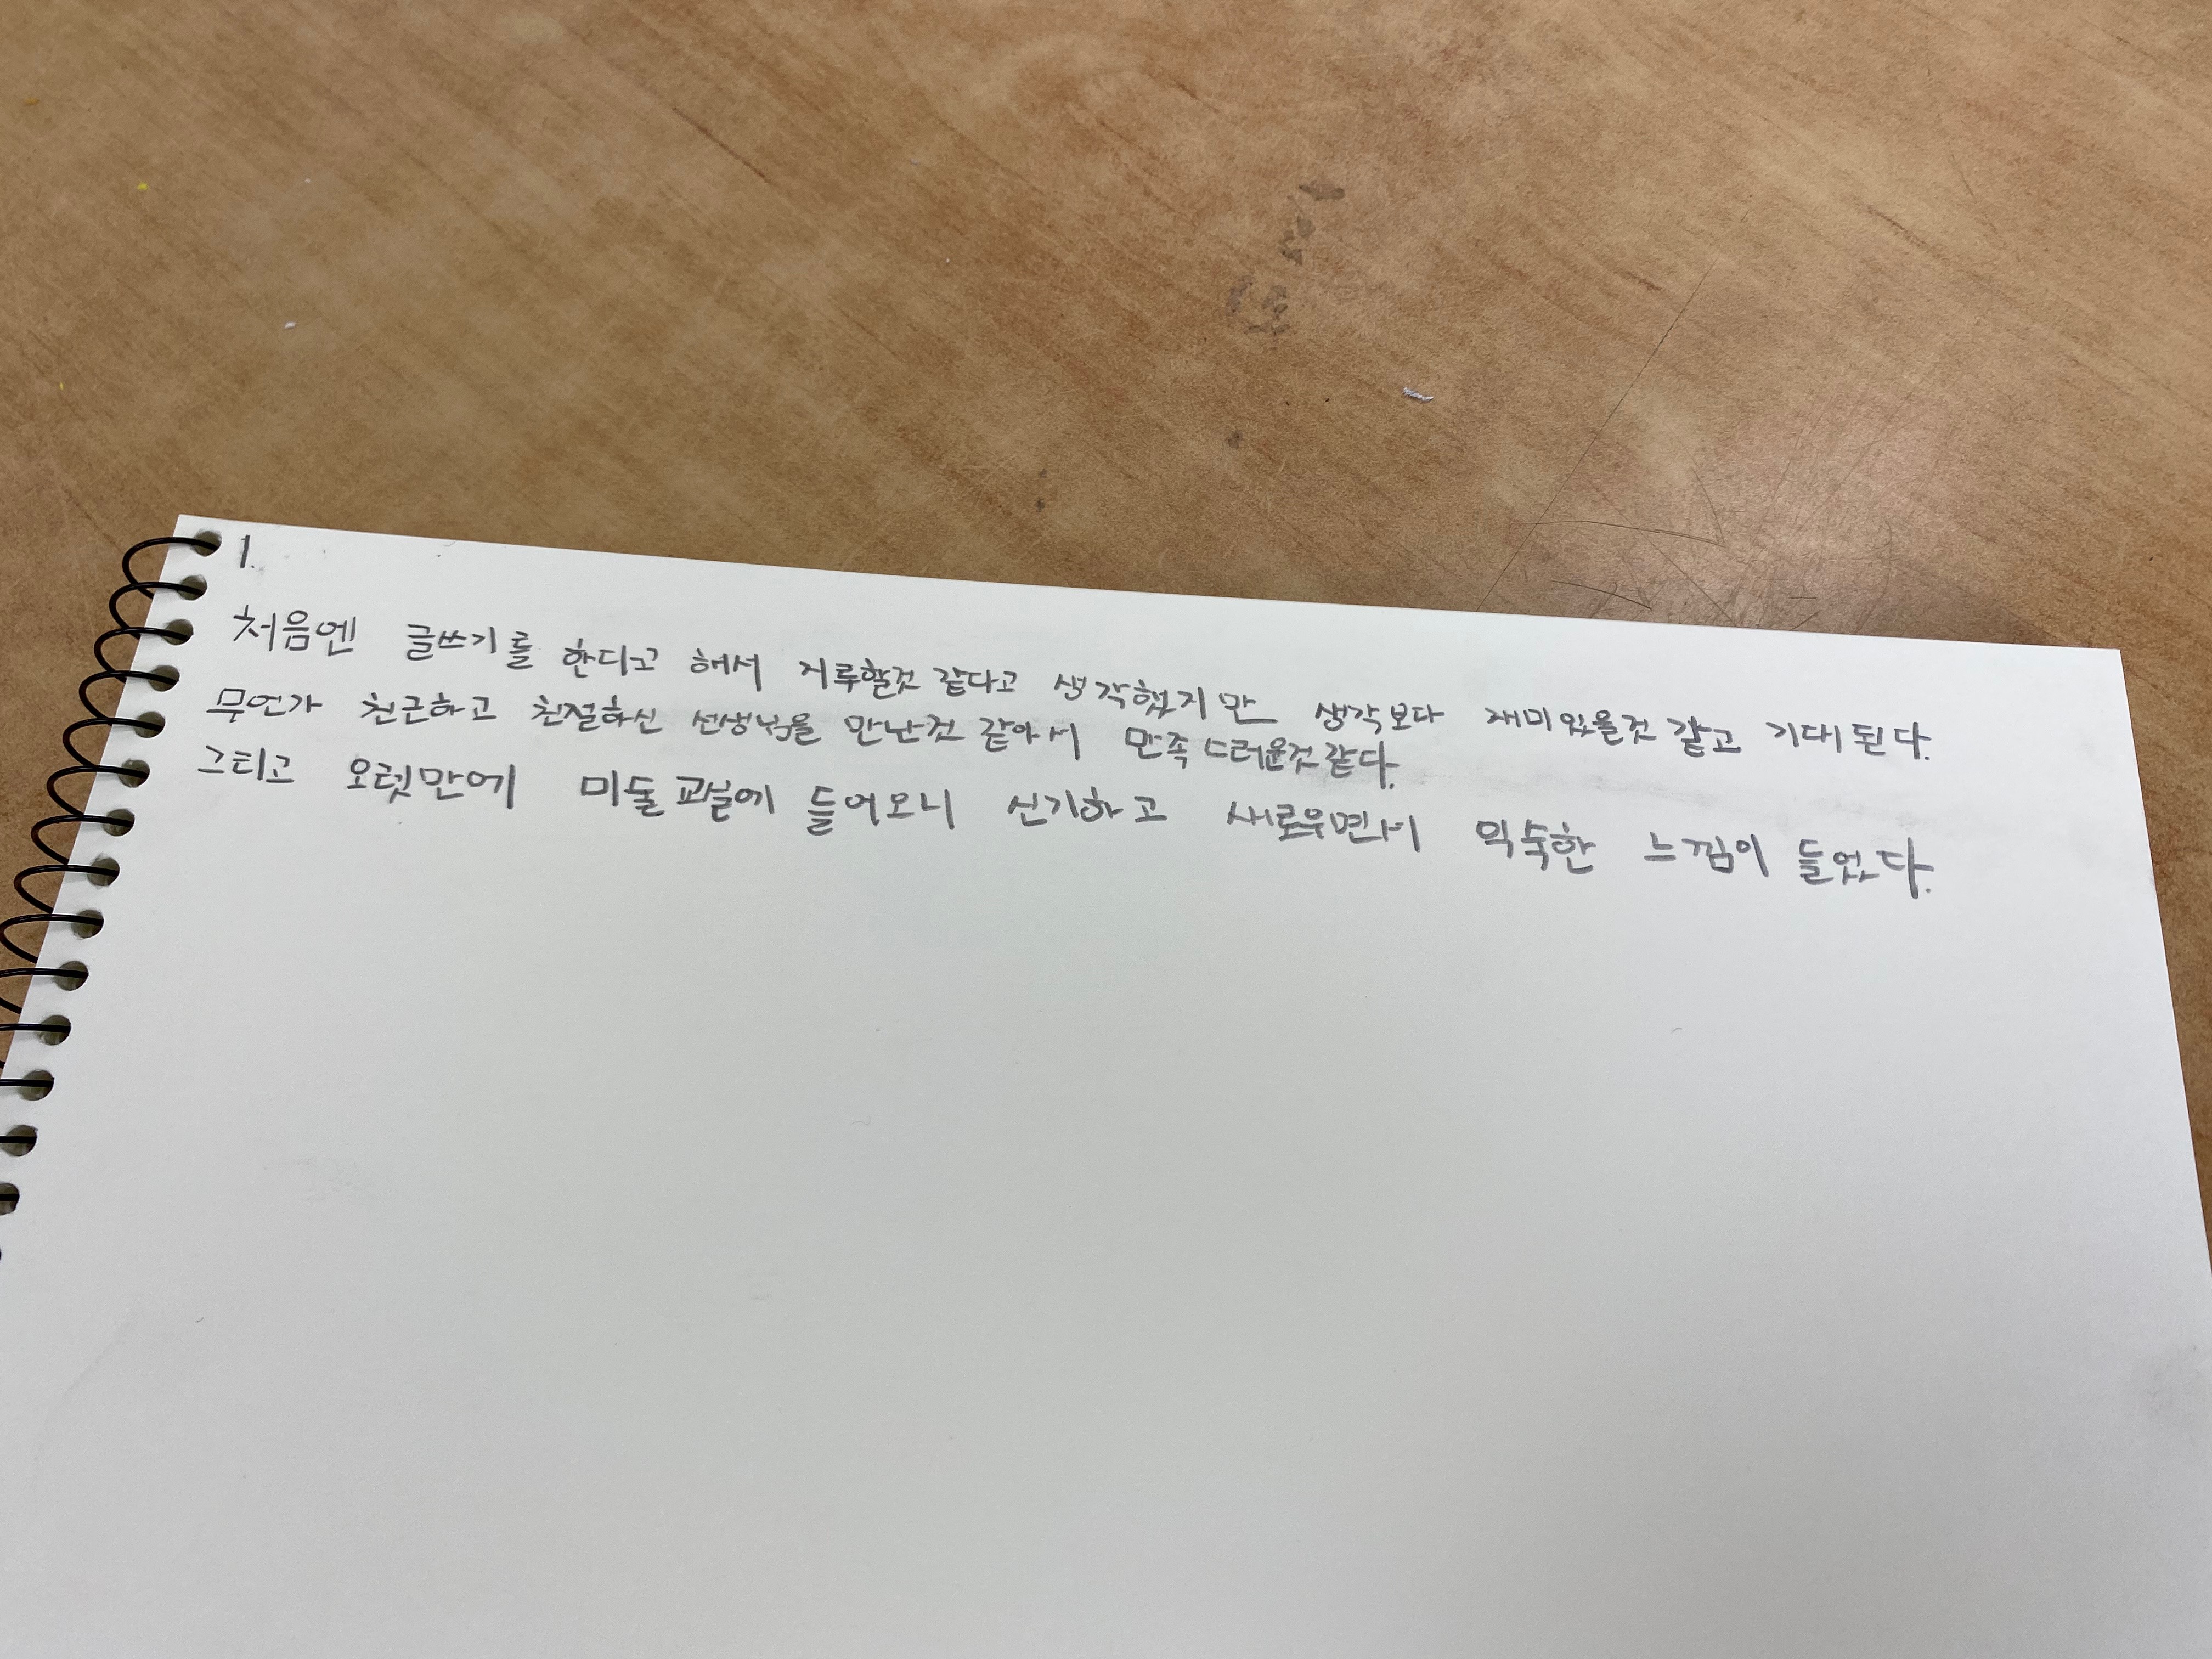 1.
처음엔 글쓰기를 한다고 해서 지루할것 같다고 생각했지만 생각보다 재미있을것 같고 기대된다.
무언가 친근하고 친절하신 선생님을 만난것 같아서 만족스러운것같다.
그리고 오랫만에 미술교실에 들어오니 신기하고 새로우면서 익숙한 느낌이 들었다.